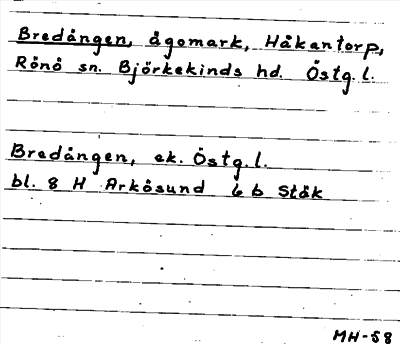 Bredången, ågomark, Håkantorp,
Rönö sn. Björkekinds hd. Östg. l.
Bredången, ek. Östg. l.
bl. 8 H Arkösund 6 b Stök
MH-58